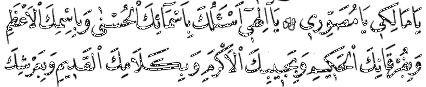 يَا مَالِكِي يَا مُصَوِّرِي ۞ يَا اِلٰهِي اَسْئَلُكَ بِاَسْمَائِكَ الْحُسْنٰى وَبِاِسْمِكَ الْاَعْظَمِ
وَبِفُرْقَانِكَ الْحَكِيمِ وَبِحَبِيبِكَ الْاَكْرَمِ وَبِكَلَامِكَ الْقَدِيمِ وَبِعَرْشِكَ